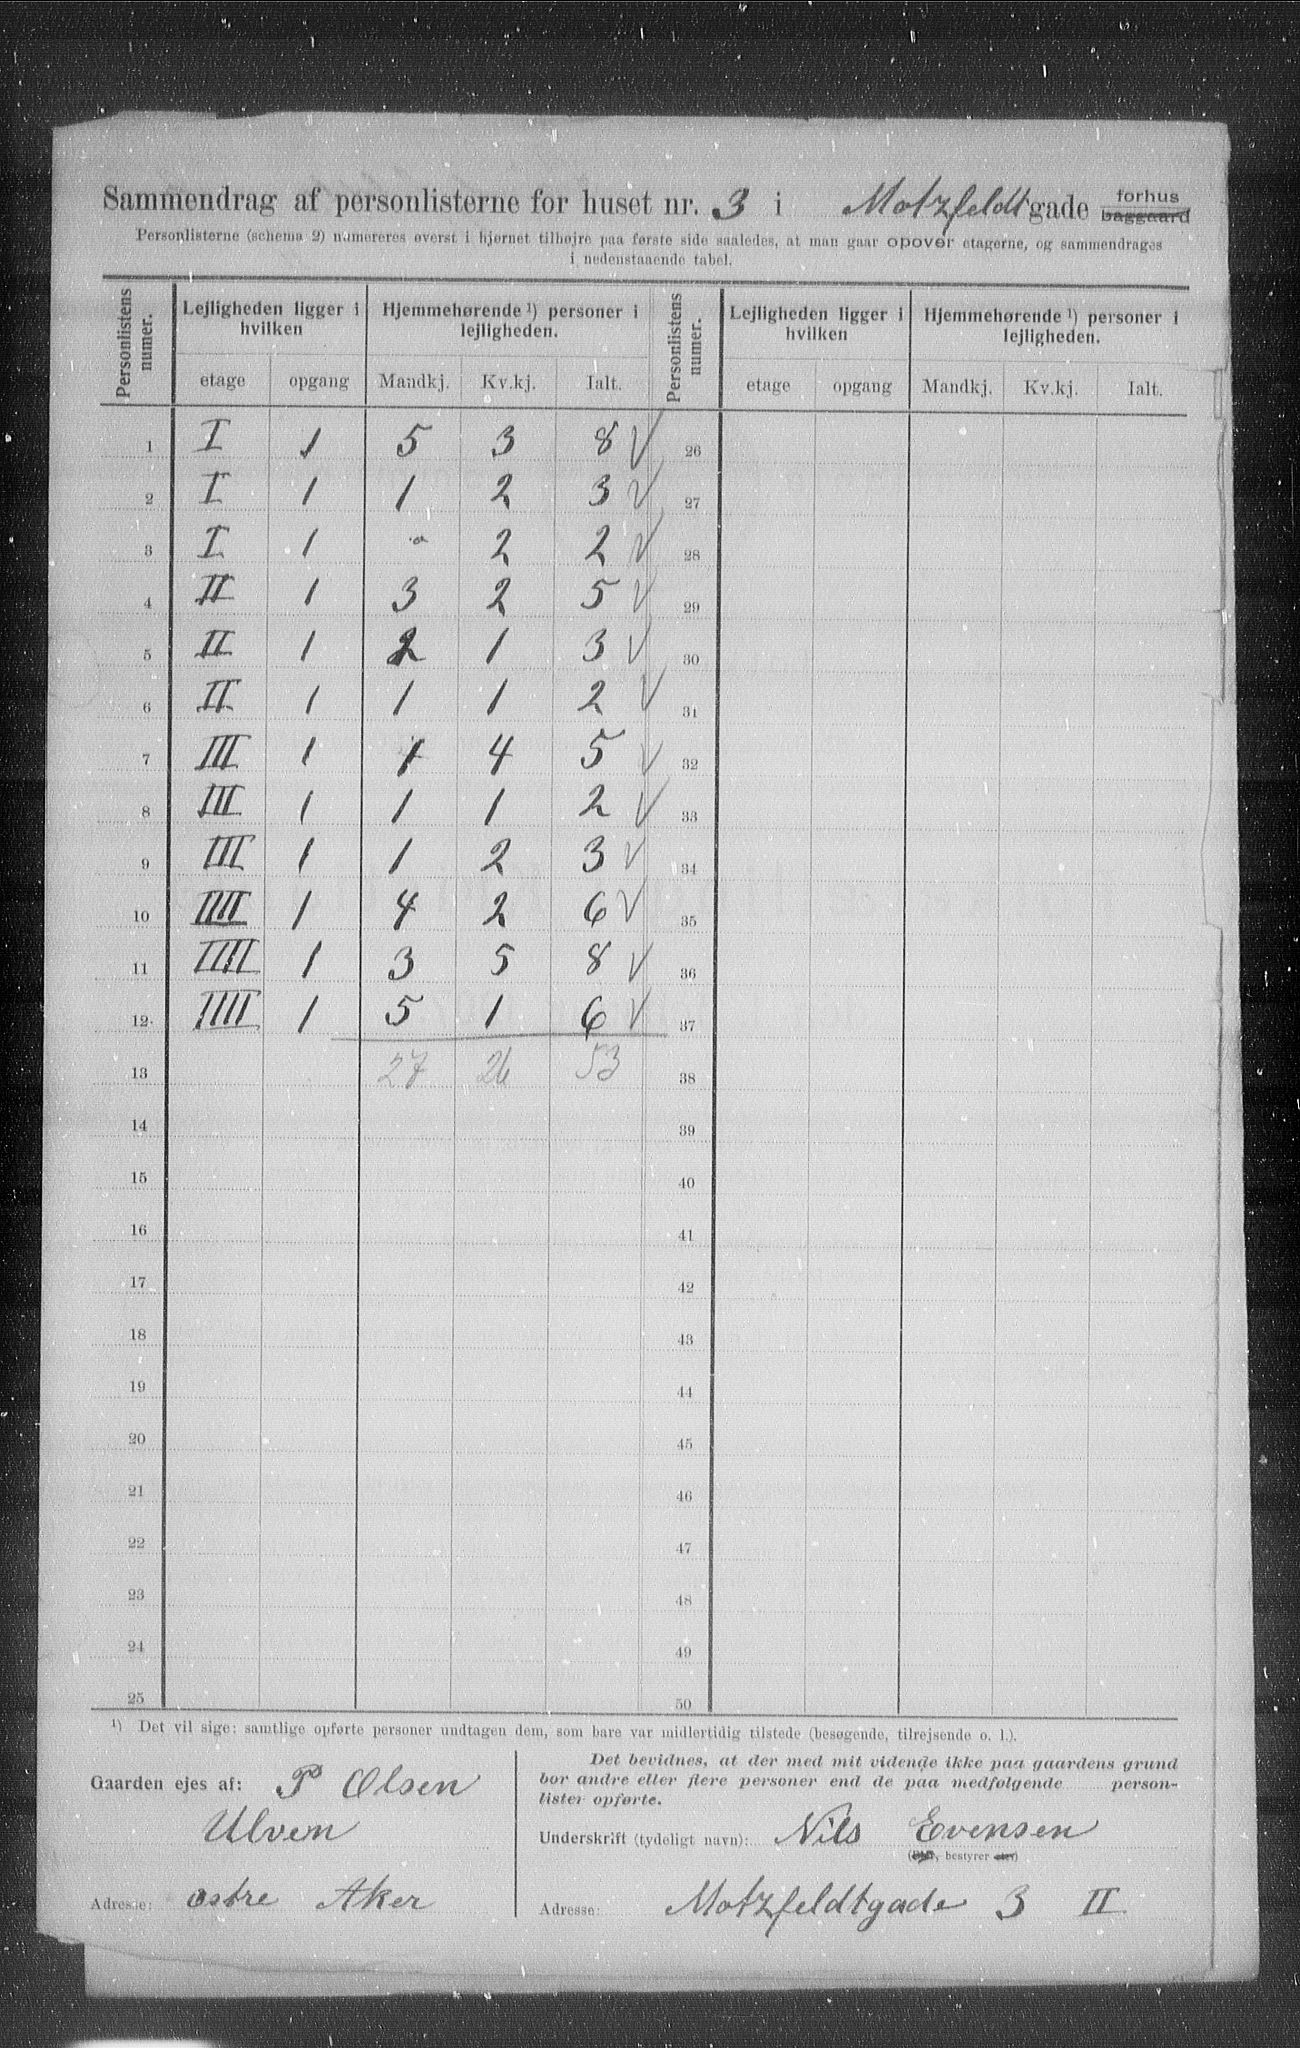 Sammendrag af personlisterne for huset nr. 3 i Motzfeldtgade forhus baggaard
Personlisterne (schema 2) numereres øverst i hjørnet tilhøjre paa første side saaledes, at man gaar opover etagerne, og sammendrages
i nedenstaaende tabel.
Personlistens numer. Lejligheden ligger i hvilken Hjemmehørende ¹) personer i lejligheden. Personlistens numer. Lejligheden ligger i hvilken Hjemmehørende ¹) personer i lejligheden.
etage opgang Mandkj. Kv.kj. Ialt. etage opgang Mandkj. Kv.kj. Ialt.
1 I 1 5 3 8 V 26
2 I 1 1 2 3 V 27
3 I 1 o 2 2 V 28
4 II 1 3 2 5 V 29
5 II 1 2 1 3 V 30
6 II 1 1 1 2 V 31
7 III 1 1 4 5 V 32
8 III 1 1 1 2 V 33
9 III 1 1 2 3 V 34
10 IIII 1 4 2 6 V 35
11 IIII 1 3 5 8 V 36
12 IIII 1 5 1 6 V 37
13 27 26 53 38
14 39
15 40
16 41
17 42
18 43
19 44
20 45
21 46
22 47
23 48
24 49
25 50
¹) Det vil sige: samtlige opførte personer undtagen dem, som bare var midlertidig tilstede (besøgende, tilrejsende o. l.).
Gaarden ejes af: P Olsen
Ulven
Adresse: østre Aker
Det bevidnes, at der med mit vidende ikke paa gaardens grund
bor andre eller flere personer end de paa medfølgende person-
lister opførte.
Underskrift (tydeligt navn): Nils Evensen
bestyrer
Adresse: Motzfeldtgade 3 II